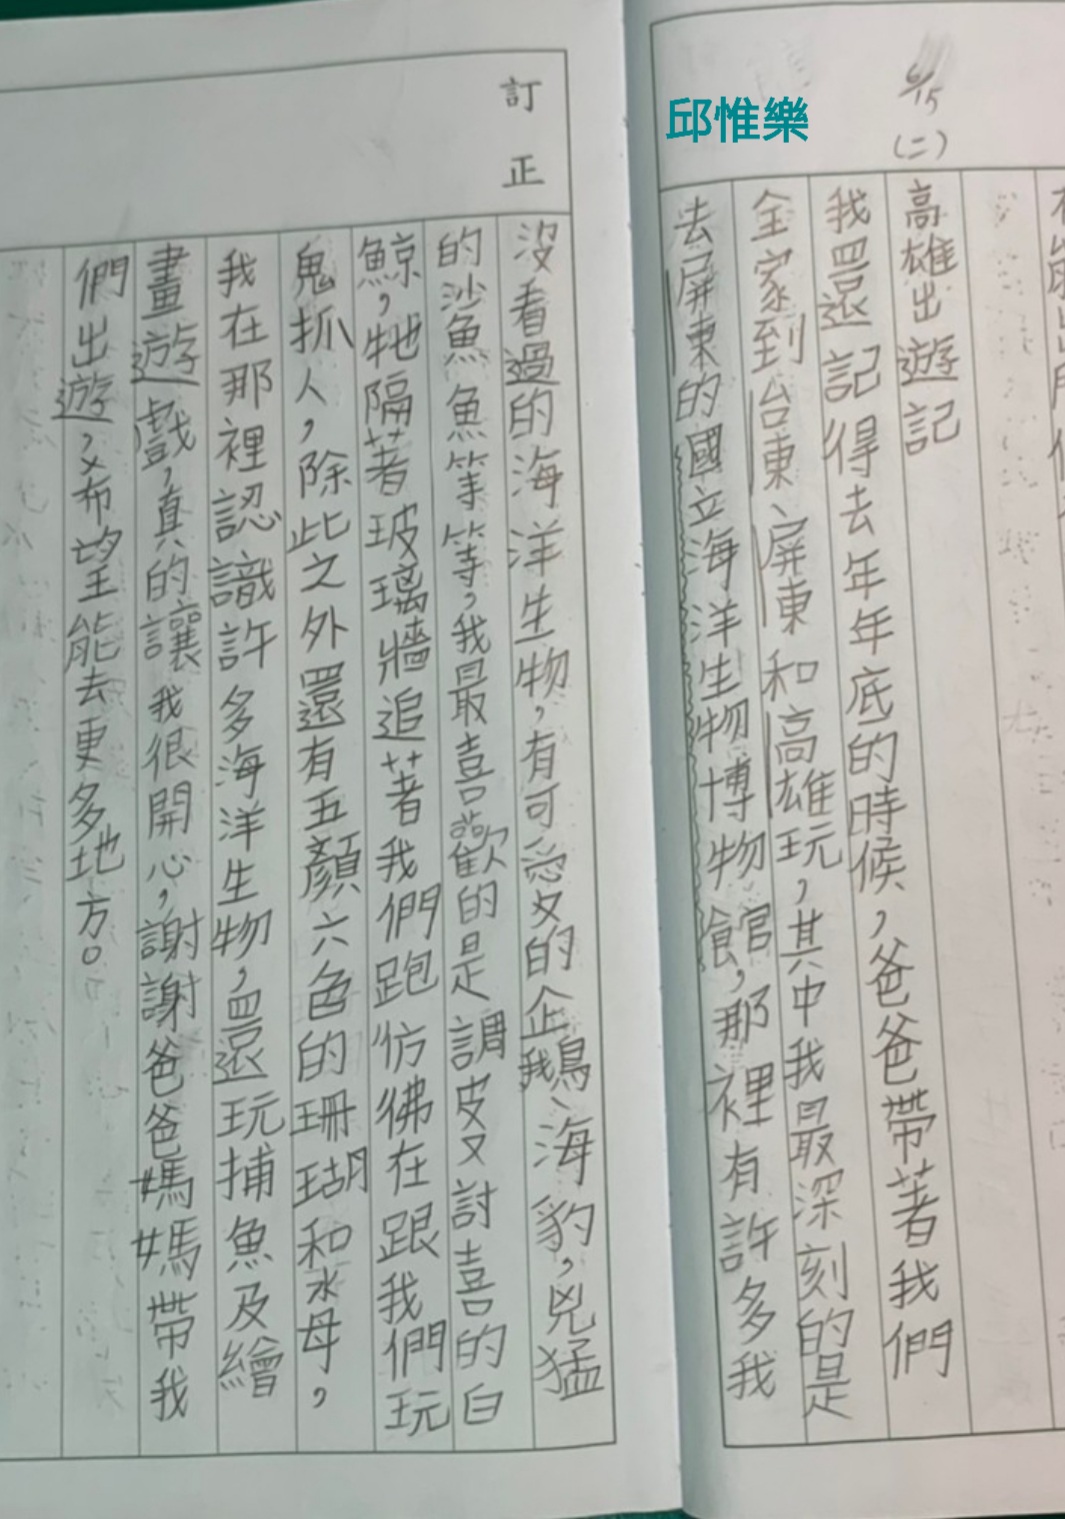 6/15
(二)
邱惟樂
高雄出遊記
我還記得去年年底的時候，爸爸帶著我們
全家到台東、屏東和高雄玩，其中我最深刻的是
去屏東的國立海洋生物博物館，那裡有許多我
訂正
沒看過的海洋生物，有可愛的企鵝、海豹，兇猛
的沙魚魚等等，我最喜歡的是調皮又討喜的白
鯨，牠隔著玻璃牆追著我們跑彷彿在跟我們玩
鬼抓人，除此之外還有五顏六色的珊瑚和水母，
我在那裡認識許多海洋生物，還玩捕魚及繪
畫遊戲，真的讓我很開心，謝謝爸爸媽媽帶我
們出遊，希望能去更多地方。